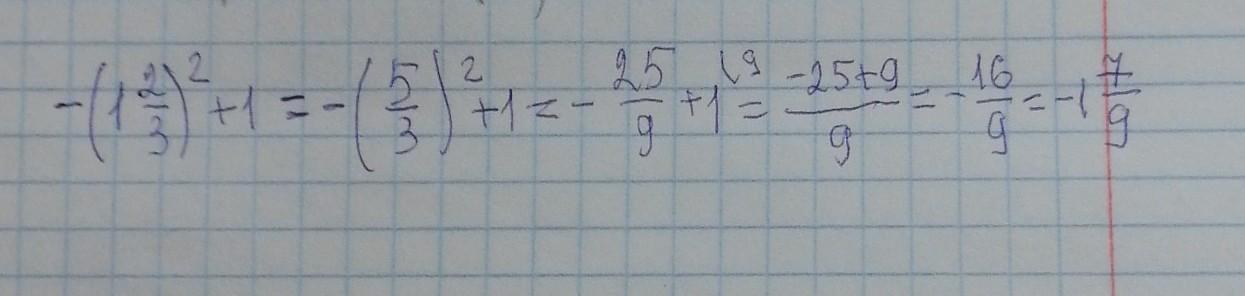 -(1 2/3)² + 1 = -(5/3)² + 1 = - 25/9 + 1^(9 = (-25+9)/9 = - 16/9 = -1 7/9